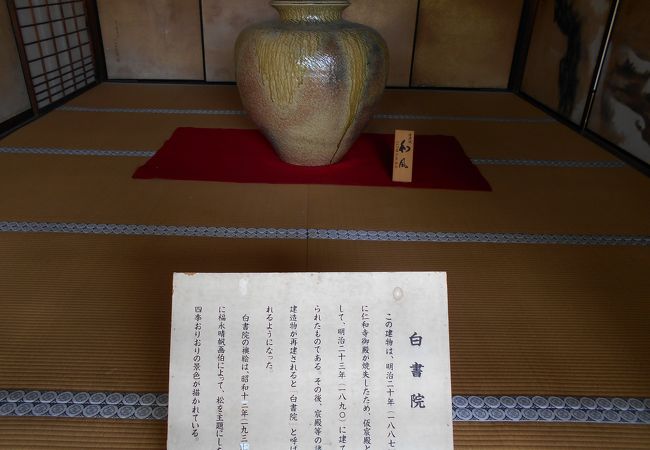 和風
白書院
この建物は、明治二十年(一八八七
に仁和寺御殿が焼失したため、仮宸殿と
して、明治二十三年(一八九〇)に建て
られたものである。その後、宸殿等の諸
建造物が再建されると「白書院」と呼ば
れるようになった。
白書院の襖絵は、昭和十二年(一九三
に福永晴帆画伯によって、松を主題にした
四季おりおりの景色が描かれている。